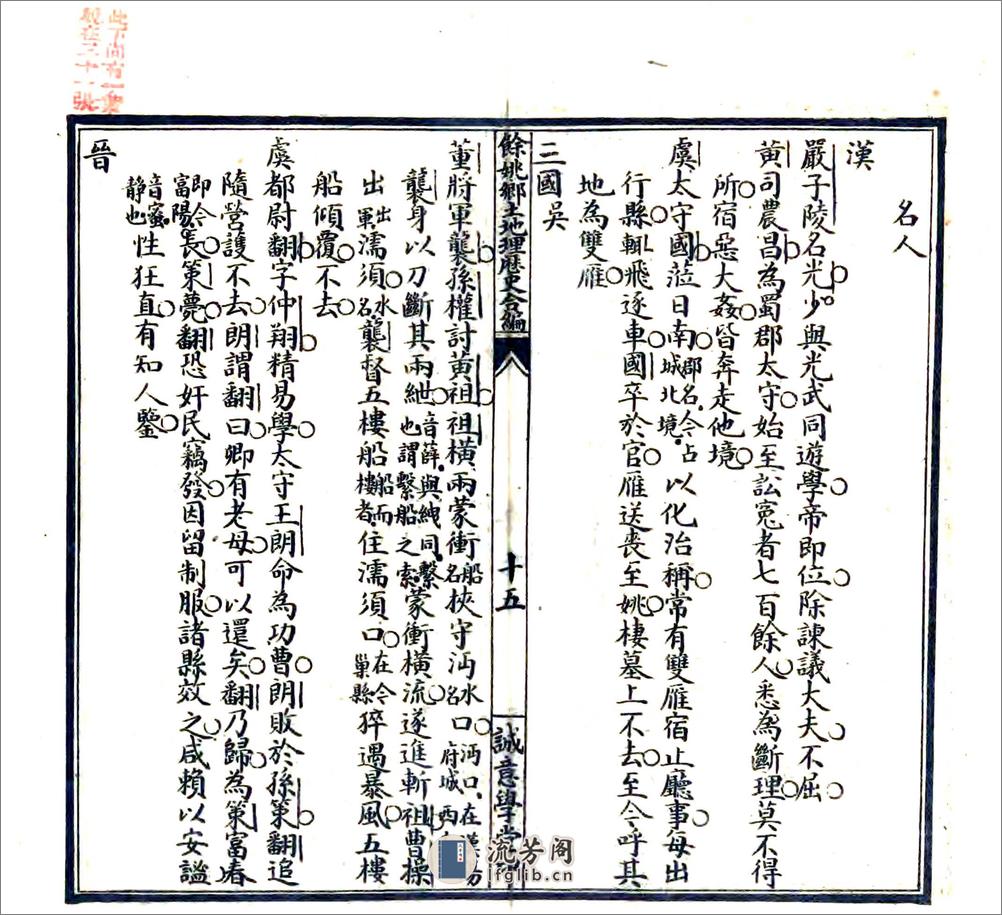 名人
漢
嚴子陵名光少與光武同遊學帝即位除諫議大夫不屈
黃司農昌為蜀郡太守始至訟冤者七百餘人悉為斷理莫不得
所宿惡大姦皆奔走他境
虞太守國蒞日南郡名今占城北境以化治稱常有雙雁宿止廳事每出
行縣輒飛逐車國卒於官雁送喪至姚棲墓上不去至今呼其
地為雙雁
三國吳
餘姚鄉土地理歷史合編
十五
誠意學堂
董將軍襲孫權討黃祖祖橫兩蒙衝船名挾守沔水名口沔口在漢陽府城西
襲身以刀斷其兩紲音薛與絏同繫也謂繫船之索蒙衝橫流遂進斬祖曹操
出出軍濡須水名襲督五樓船船而樓者住濡須口在今巢縣猝遇暴風五樓
船傾覆不去
虞都尉翻字仲翔精易學太守王朗命為功曹朗敗於孫策翻追
隨營護不去朗謂翻曰卿有老母可以還矣翻乃歸為策富春
即今富陽長策薨翻恐奸民竊發因留制服諸縣效之咸賴以安謐
音蜜靜也性狂直有知人鑒
晉
流芳阁
lfglib.cn